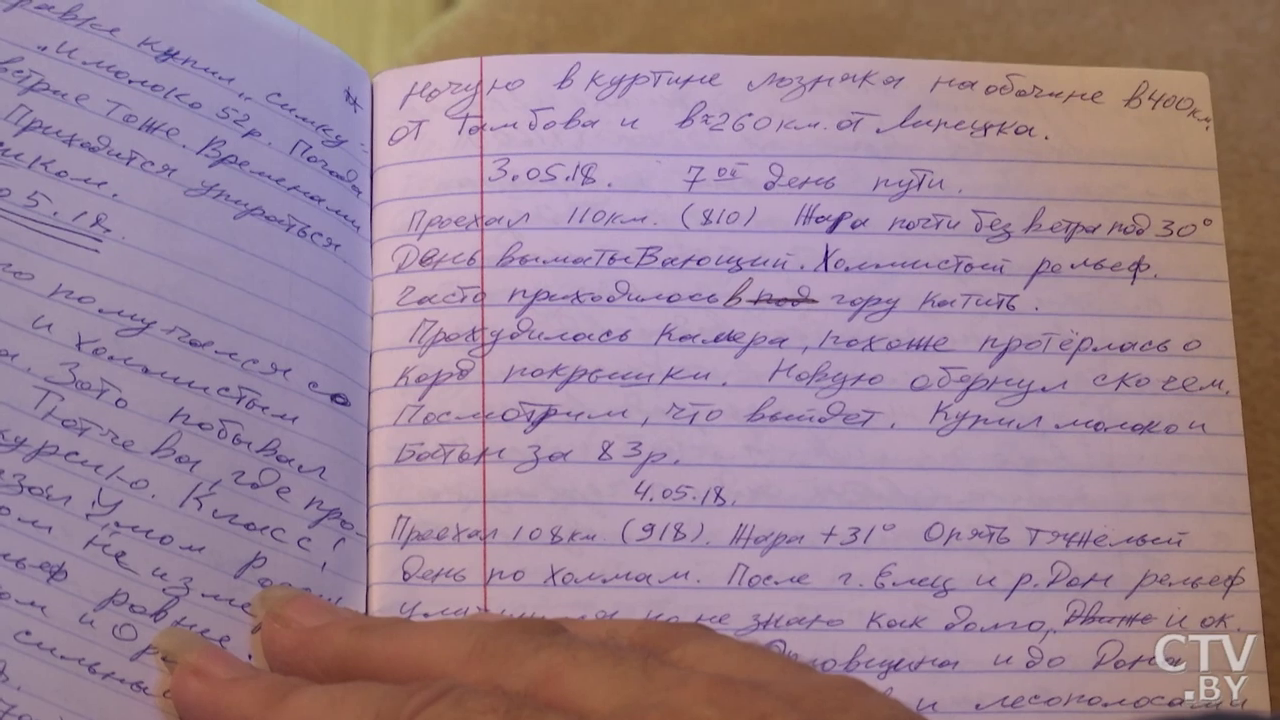 равке купил симку
и молоко 52р. Погода
ветрие тоже. Временами
Приходится упираться
05.18г.
помучался со
и холмистым
Зато побывал
Тютчева, где про-
курсию. Класс!
Умом
не изме
ровнее.
сильный
Ночую в куртине лозняка на обочине в 400км.
от Тамбова и в ≈260км. от Липецка.
3.05.18. 7ой день пути.
Проехал 110км. (810) Жара почти без ветра под 30°
День выматывающий. Холмистый рельеф.
Часто приходилось в под гору катить.
Прохудилась камера, похоже протёрлась о
корд покрышки. Новую обернул скочем.
Посмотрим, что выйдет. Купил молоко и
батон за 83р.
4.05.18.
Проехал 108км. (918). Жара +31° Опять тяжёлый
день по холмам. После г. Елец и р. Дон рельеф
но не знаю как долго, и ок.
Орловщина и до Дона
и лесополосами
CTV
.BY